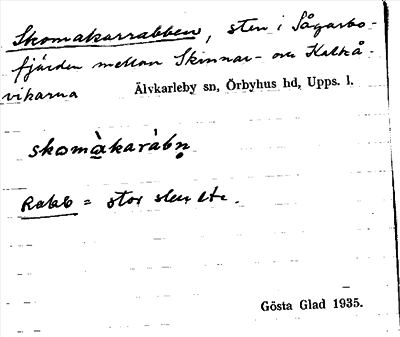 Skomakarrabben, sten i Sågarbo-
fjärden mellan Skinnar- och Kaltå-
vikarna
Älvkarleby sn, Örbyhus hd, Upps. l.
skomàkaràbn̥
Rabb = stor sten etc.
Gösta Glad 1935.